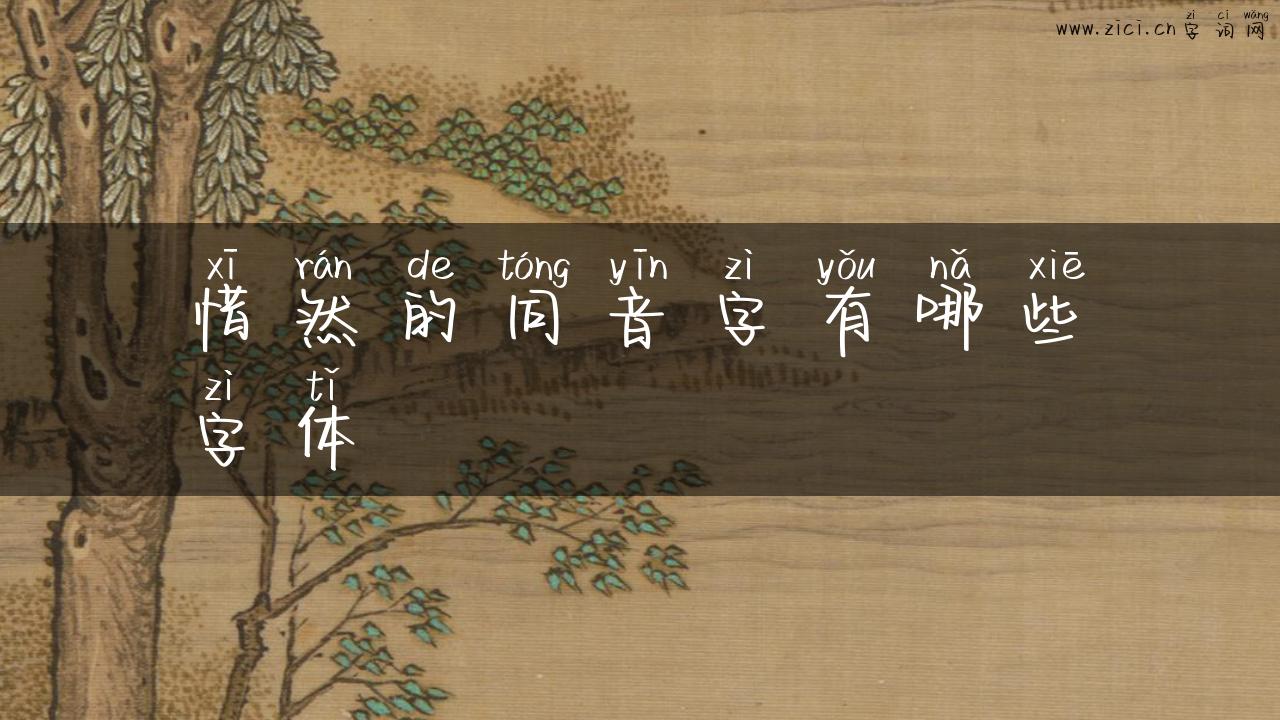 zì cí wǎng
www.zici.cn 字词网
xī rán de tóng yīn zì yǒu nǎ xiē
惜然的同音字有哪些
zì tǐ
字体